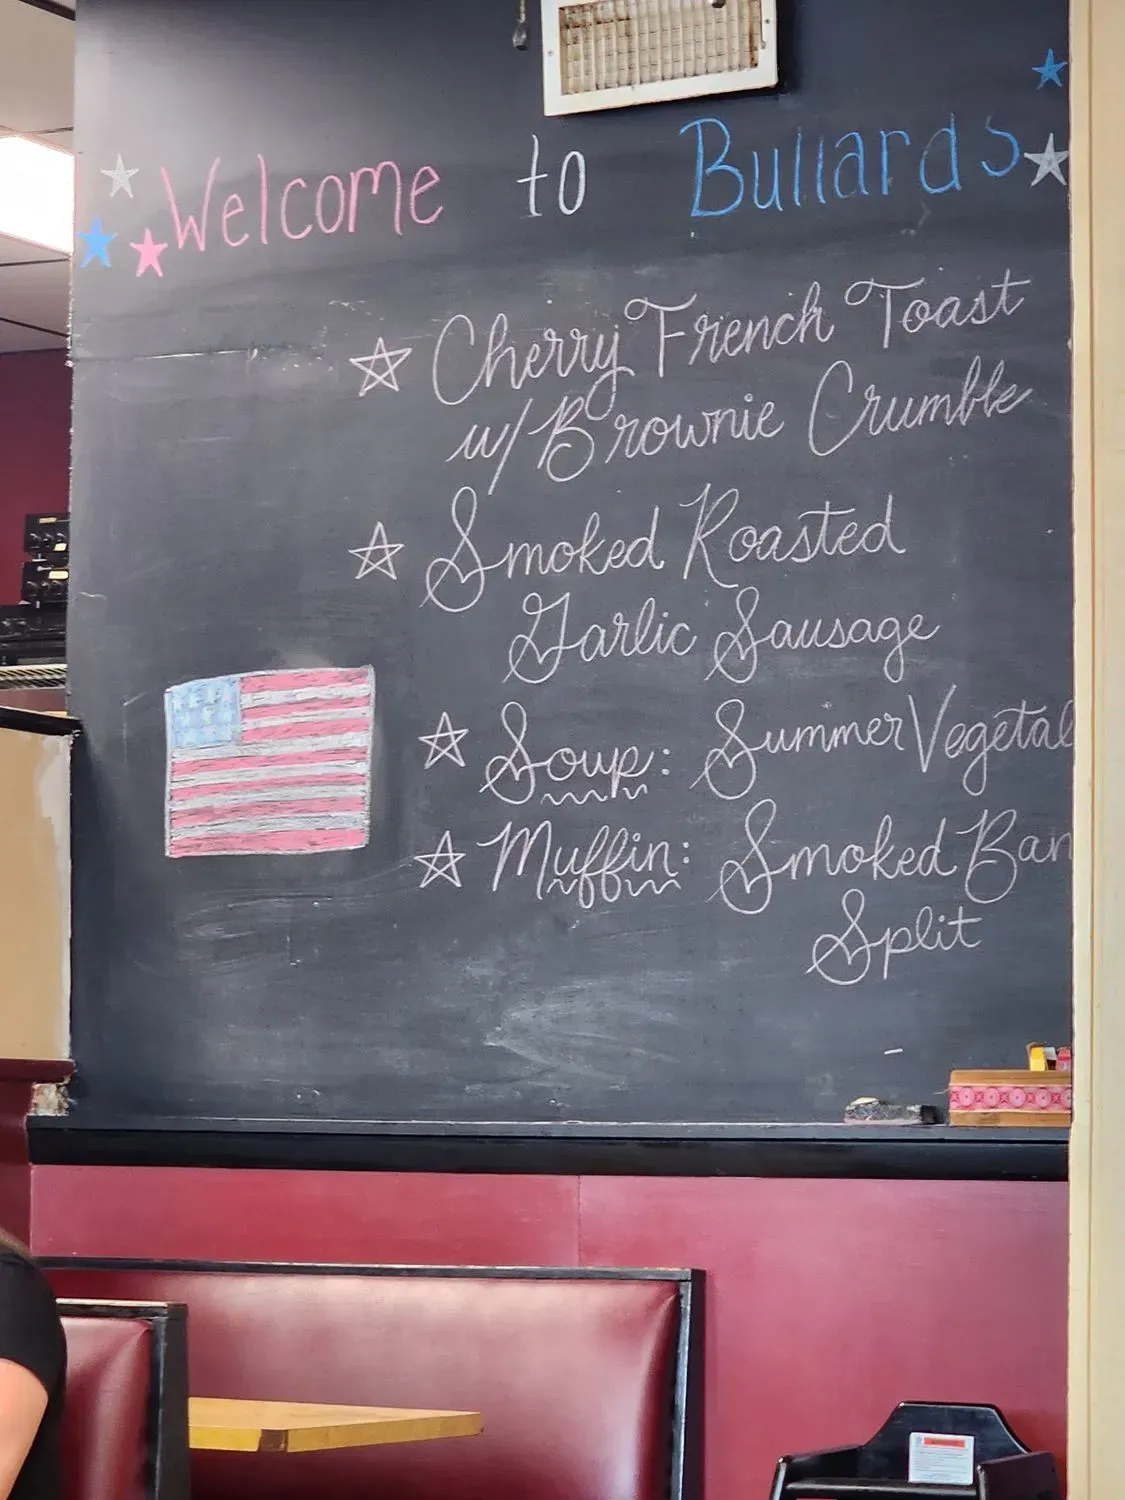 Welcome to Bullards
Cherry French Toast
w/ Brownie Crumble
Smoked Roasted
Garlic Sausage
Soup: Summer Vegetal
Muffin: Smoked Ban
Split